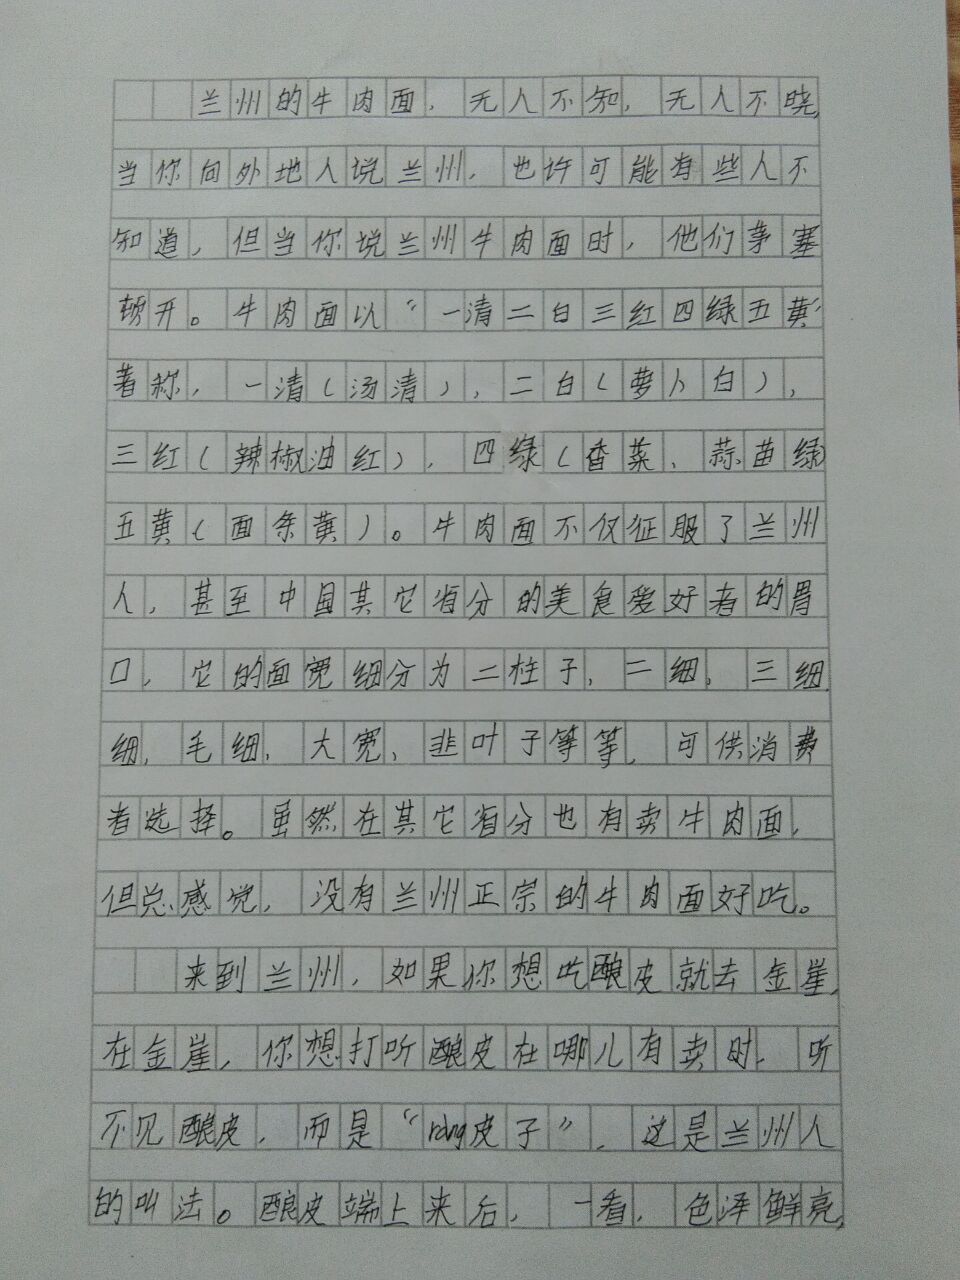 兰州的牛肉面，无人不知，无人不晓，
当你向外地人说兰州，也许可能有些人不
知道，但当你说兰州牛肉面时，他们茅塞
顿开。牛肉面以“一清二白三红四绿五黄”
著称，一清（汤清），二白（萝卜白），
三红（辣椒油红），四绿（香菜、蒜苗绿）
五黄（面条黄）。牛肉面不仅征服了兰州
人，甚至中国其它省分的美食爱好者的胃
口，它的面宽细分为二柱子，二细，三细，
细，毛细，大宽、韭叶子等等，可供消费
者选择。虽然在其它省分也有卖牛肉面，
但总感觉，没有兰州正宗的牛肉面好吃。
来到兰州，如果你想吃酿皮就去金崖，
在金崖，你想打听酿皮在哪儿有卖时，听
不见酿皮，而是“rang皮子”，这是兰州人
的叫法。酿皮端上来后，一看，色泽鲜亮，